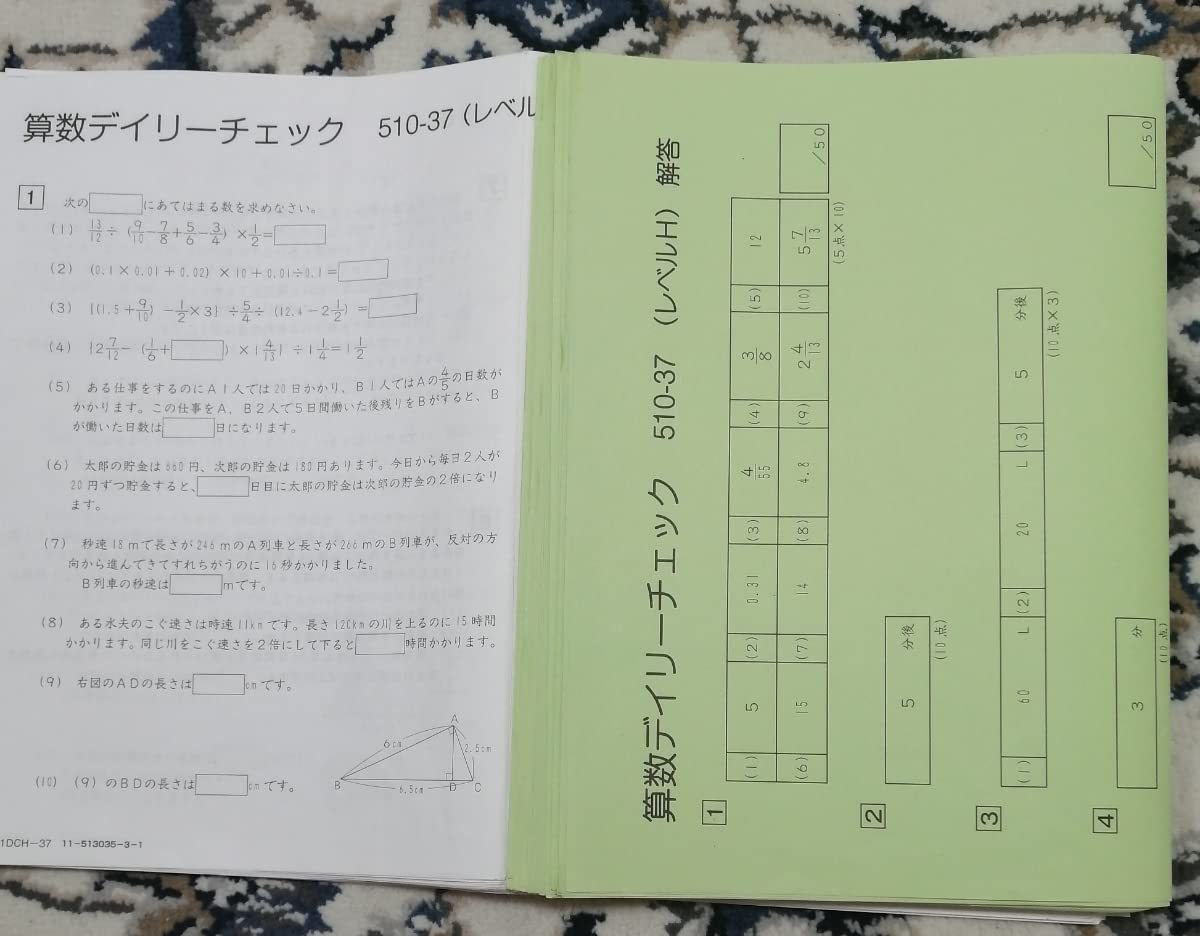 算数デイリーチェック 510-37 (レベル
1 次の□にあてはまる数を求めなさい。
(1) 13/12÷(9/10−7/8+5/6−3/4)×1/2=□
(2) (0.1×0.01+0.02)×10+0.01÷0.1=□
(3) {(1.5+9/10)−1/2×3}÷5/4÷(12.4−2 1/2)=□
(4) {2 7/12−(1/6+□)×1 4/13}÷1 1/4=1 1/2
(5) ある仕事をするのにA1人では20日かかり、B1人ではAの4/5の日数が
かかります。この仕事をA、B2人で5日間働いた後残りをBがすると、B
が働いた日数は□日になります。
(6) 太郎の貯金は660円、次郎の貯金は180円あります。今日から毎日2人が
20円ずつ貯金すると、□日目に太郎の貯金は次郎の貯金の2倍になり
ます。
(7) 秒速18mで長さが246mのA列車と長さが266mのB列車が、反対の方
向から進んできてすれちがうのに16秒かかりました。
B列車の秒速は□mです。
(8) ある水夫のこぐ速さは時速11kmです。長さ120kmの川を上るのに15時間
かかります。同じ川をこぐ速さを2倍にして下ると□時間かかります。
(9) 右図のADの長さは□cmです。
(10) (9)のBDの長さは□cmです。
A
6cm
2.5cm
B
6.5cm
D
C
1DCH−37 11−513035−3−1
算数デイリーチェック 510-37 (レベルH) 解答
1
(1) 5 (2) 0.31 (3) 4/55 (4) 3/8 (5) 12
(6) 15 (7) 14 (8) 4.8 (9) 2 4/13 (10) 5 7/13
/50
(5点×10)
2
5 分後
(10点)
3
(1) 60 L (2) 20 L (3) 5 分後
(10点×3)
4
3 分
(10点)
/50